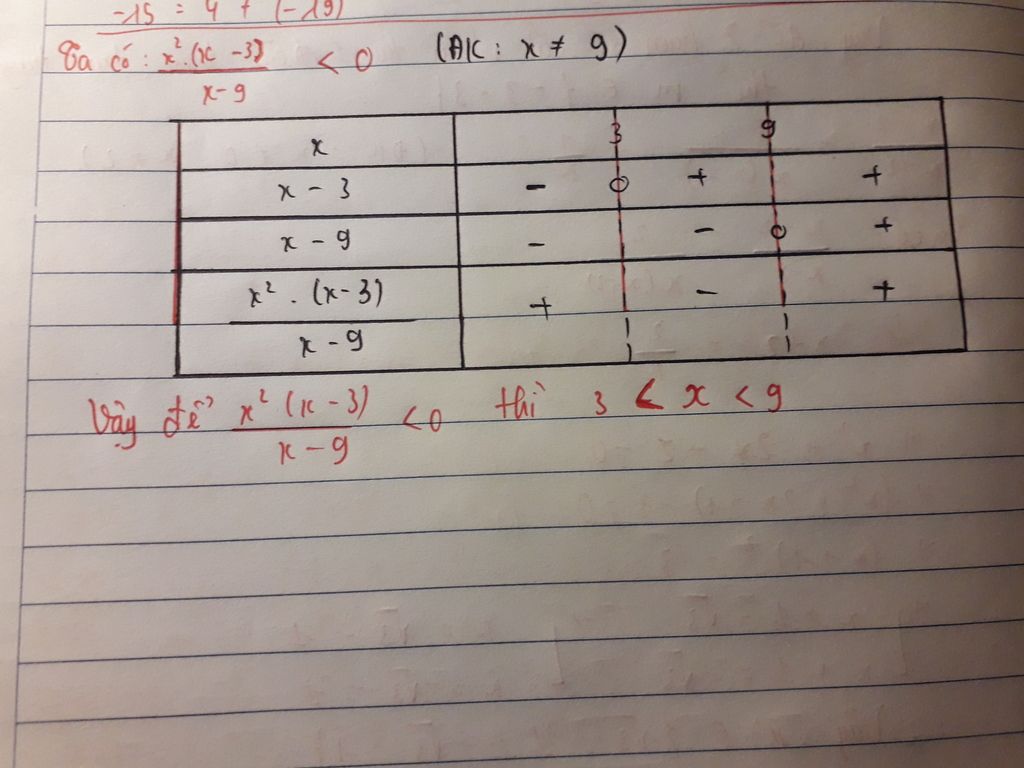 -15 = 4 + (-19)
Ta có: x².(x-3)/x-9 < 0 (ĐK: x ≠ 9)
x 3 9
x - 3 - 0 + +
x - 9 - - 0 +
x² . (x-3)/x - 9 + - +
Vậy để x² (x - 3)/x - 9 <0 thì 3 < x < 9